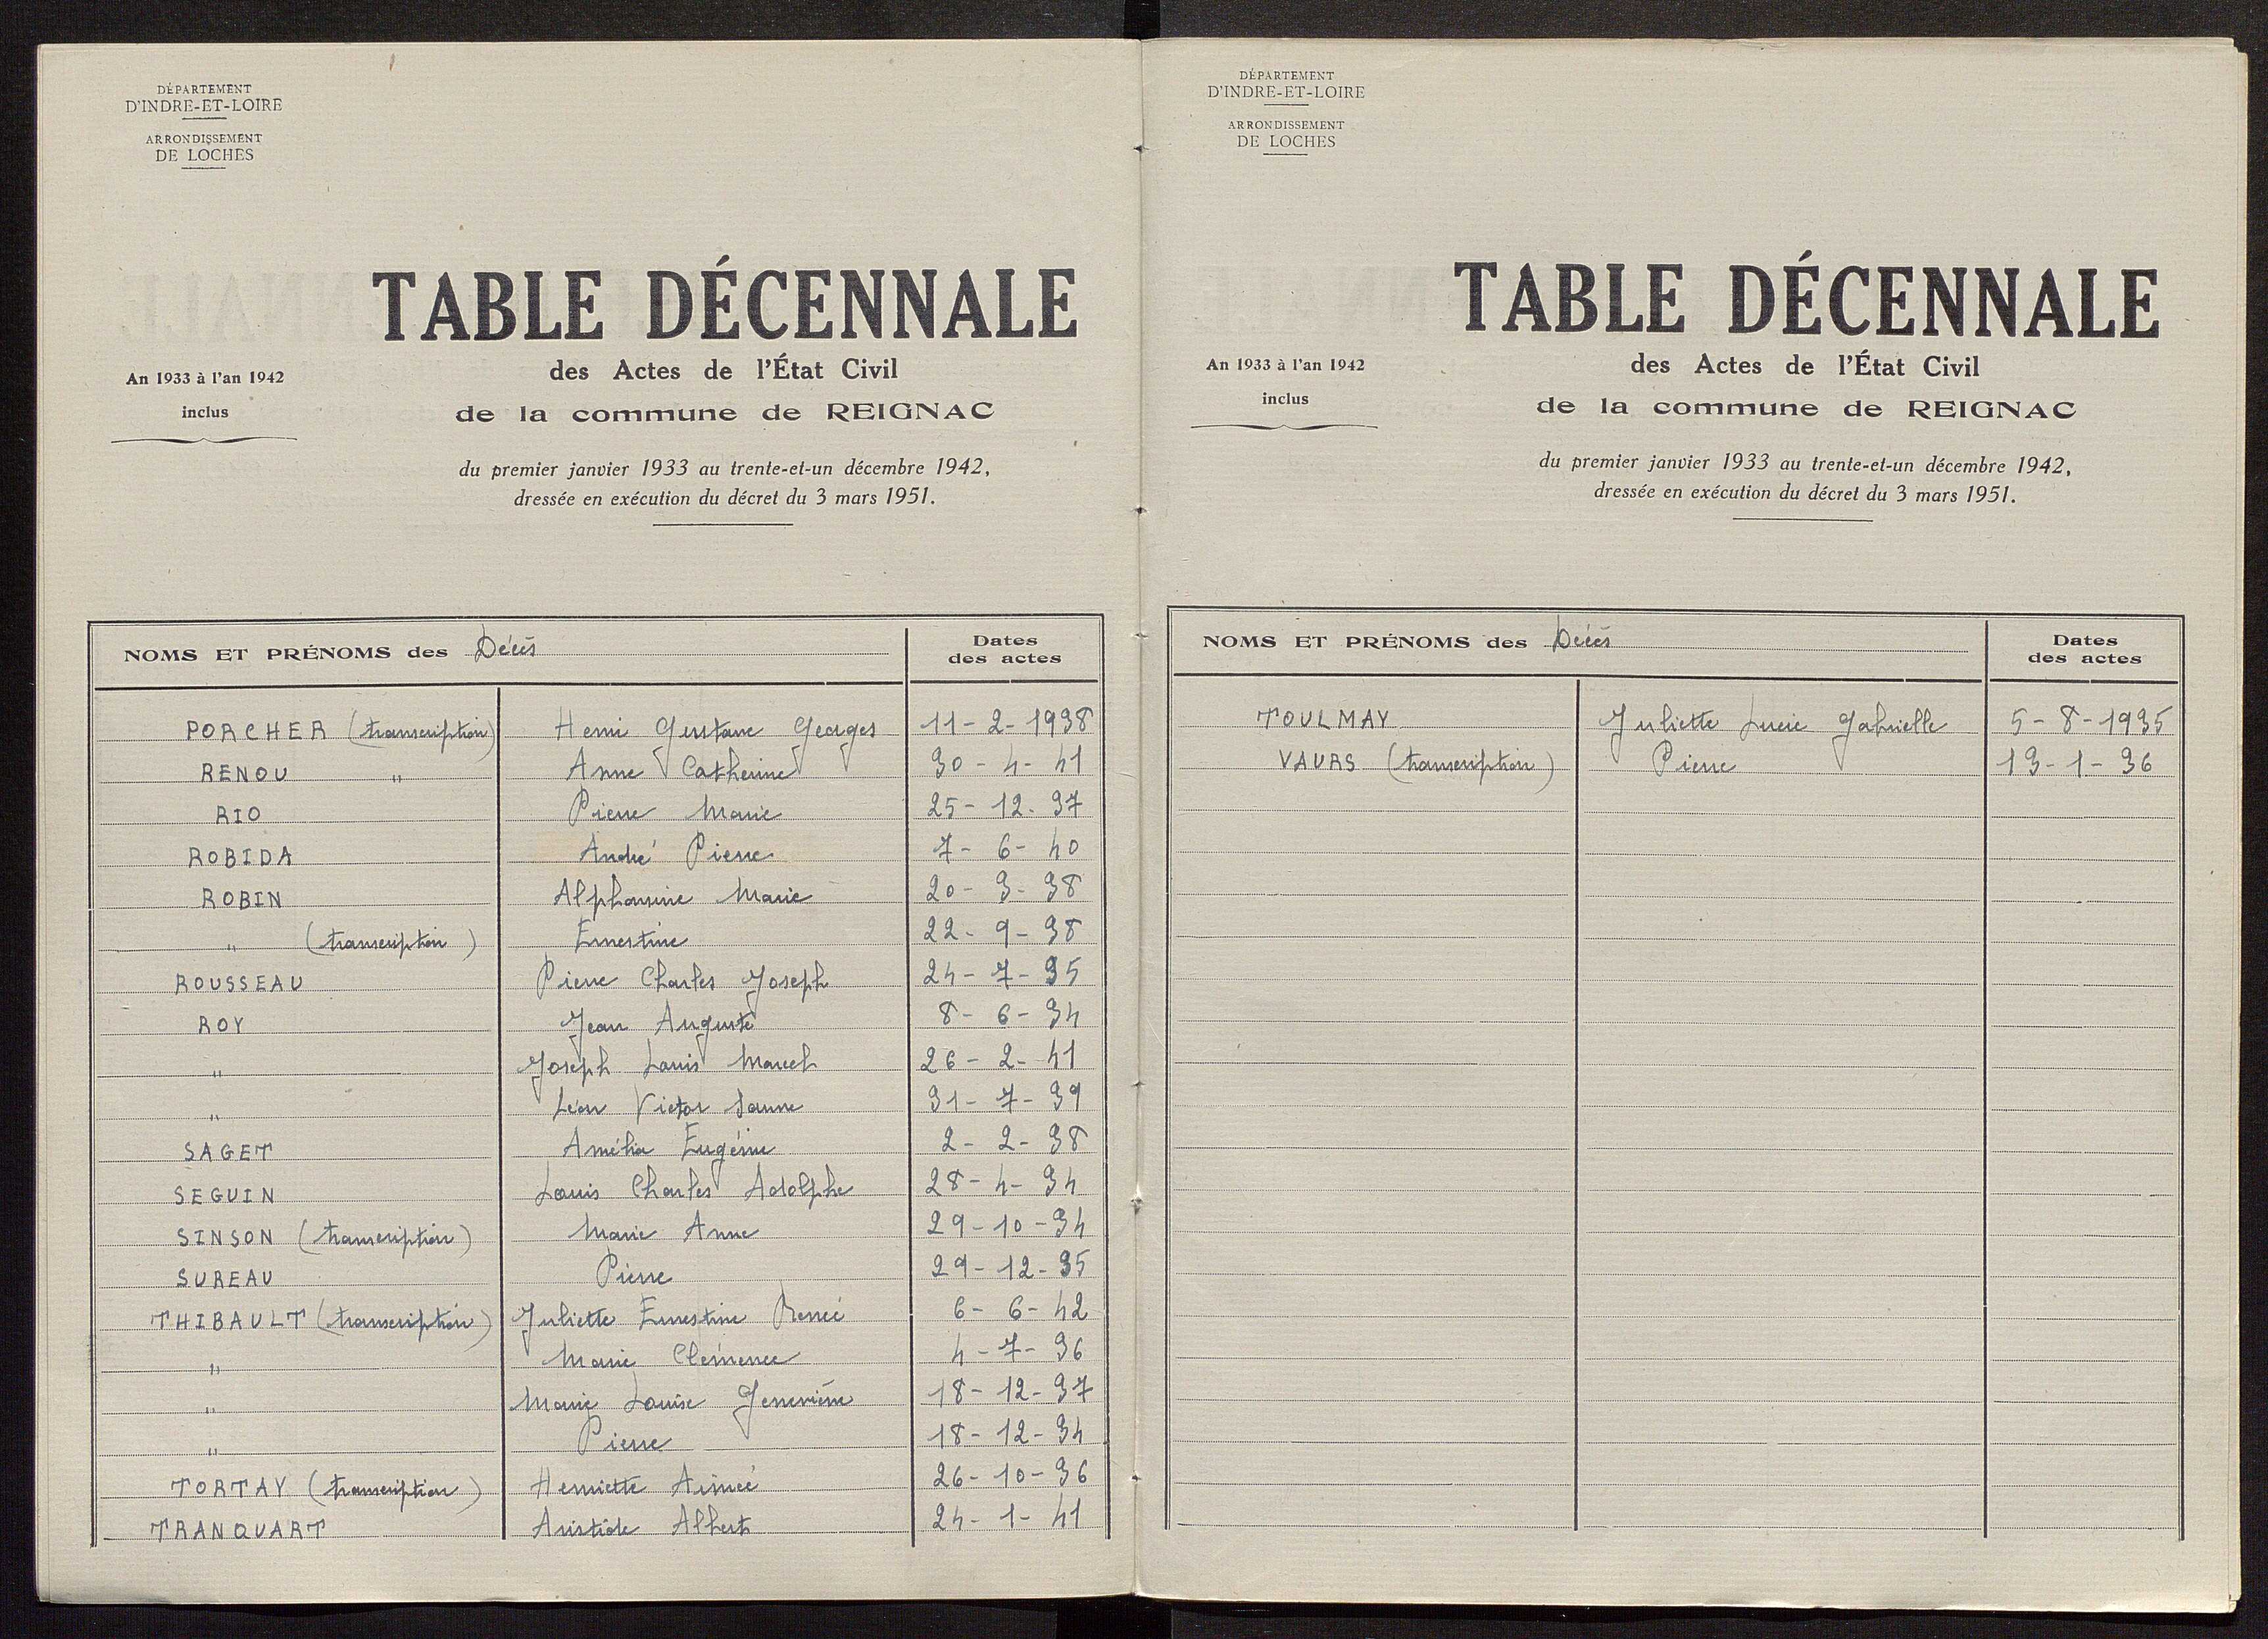 DÉPARTEMENT
D'INDRE-ET-LOIRE
ARRONDISSEMENT
DE LOCHES
TABLE DÉCENNALE
An 1933 à l'an 1942
inclus
des Actes de l'État Civil
de la commune de REIGNAC
du premier janvier 1933 au trente-et-un décembre 1942,
dressée en exécution du décret du 3 mars 1951.
NOMS ET PRÉNOMS des Décès Dates des actes
PORCHER (transcription) Henri Gustave Georges 11-2-1938
RENOU " Anne Catherine 30-4-41
RIO Pierre Marie 25-12-37
ROBIDA André Pierre 7-6-40
ROBIN Alphonsine Marie 20-3-38
" (transcription) Ernestine 22-9-38
ROUSSEAU Pierre Charles Joseph 24-7-35
ROY Jean Auguste 8-6-34
" Joseph Louis Marcel 26-2-41
" Léon Victor 31-7-39
SAGET Amélia Eugénie 2-2-38
SEGUIN Louis Charles Adolphe 28-4-34
SINSON (transcription) Marie Anne 29-10-34
SUREAU Pierre 29-12-35
THIBAULT (transcription) Juliette Ernestine Renée 6-6-42
" Marie Clémence 4-7-36
" Marie Louise Geneviève 18-12-37
" Pierre 18-12-34
TORTAY (transcription) Henriette Aimée 26-10-36
TRANQUART Aristide Albert 24-1-41
DÉPARTEMENT
D'INDRE-ET-LOIRE
ARRONDISSEMENT
DE LOCHES
TABLE DÉCENNALE
An 1933 à l'an 1942
inclus
des Actes de l'État Civil
de la commune de REIGNAC
du premier janvier 1933 au trente-et-un décembre 1942,
dressée en exécution du décret du 3 mars 1951.
NOMS ET PRÉNOMS des Décès Dates des actes
TOULMAY Juliette Lucie Gabrielle 5-8-1935
VAURS (transcription) Pierre 13-1-36